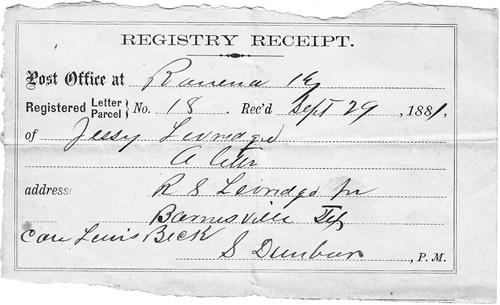 REGISTRY RECEIPT.
Post Office at Ravena Ky
Registered Letter Parcel } No. 18 Rec'd Sept 29, 1881,
of Jessy
A
address: R S
Barnesville
Care Lewis Beck
S Dunbar, P. M.